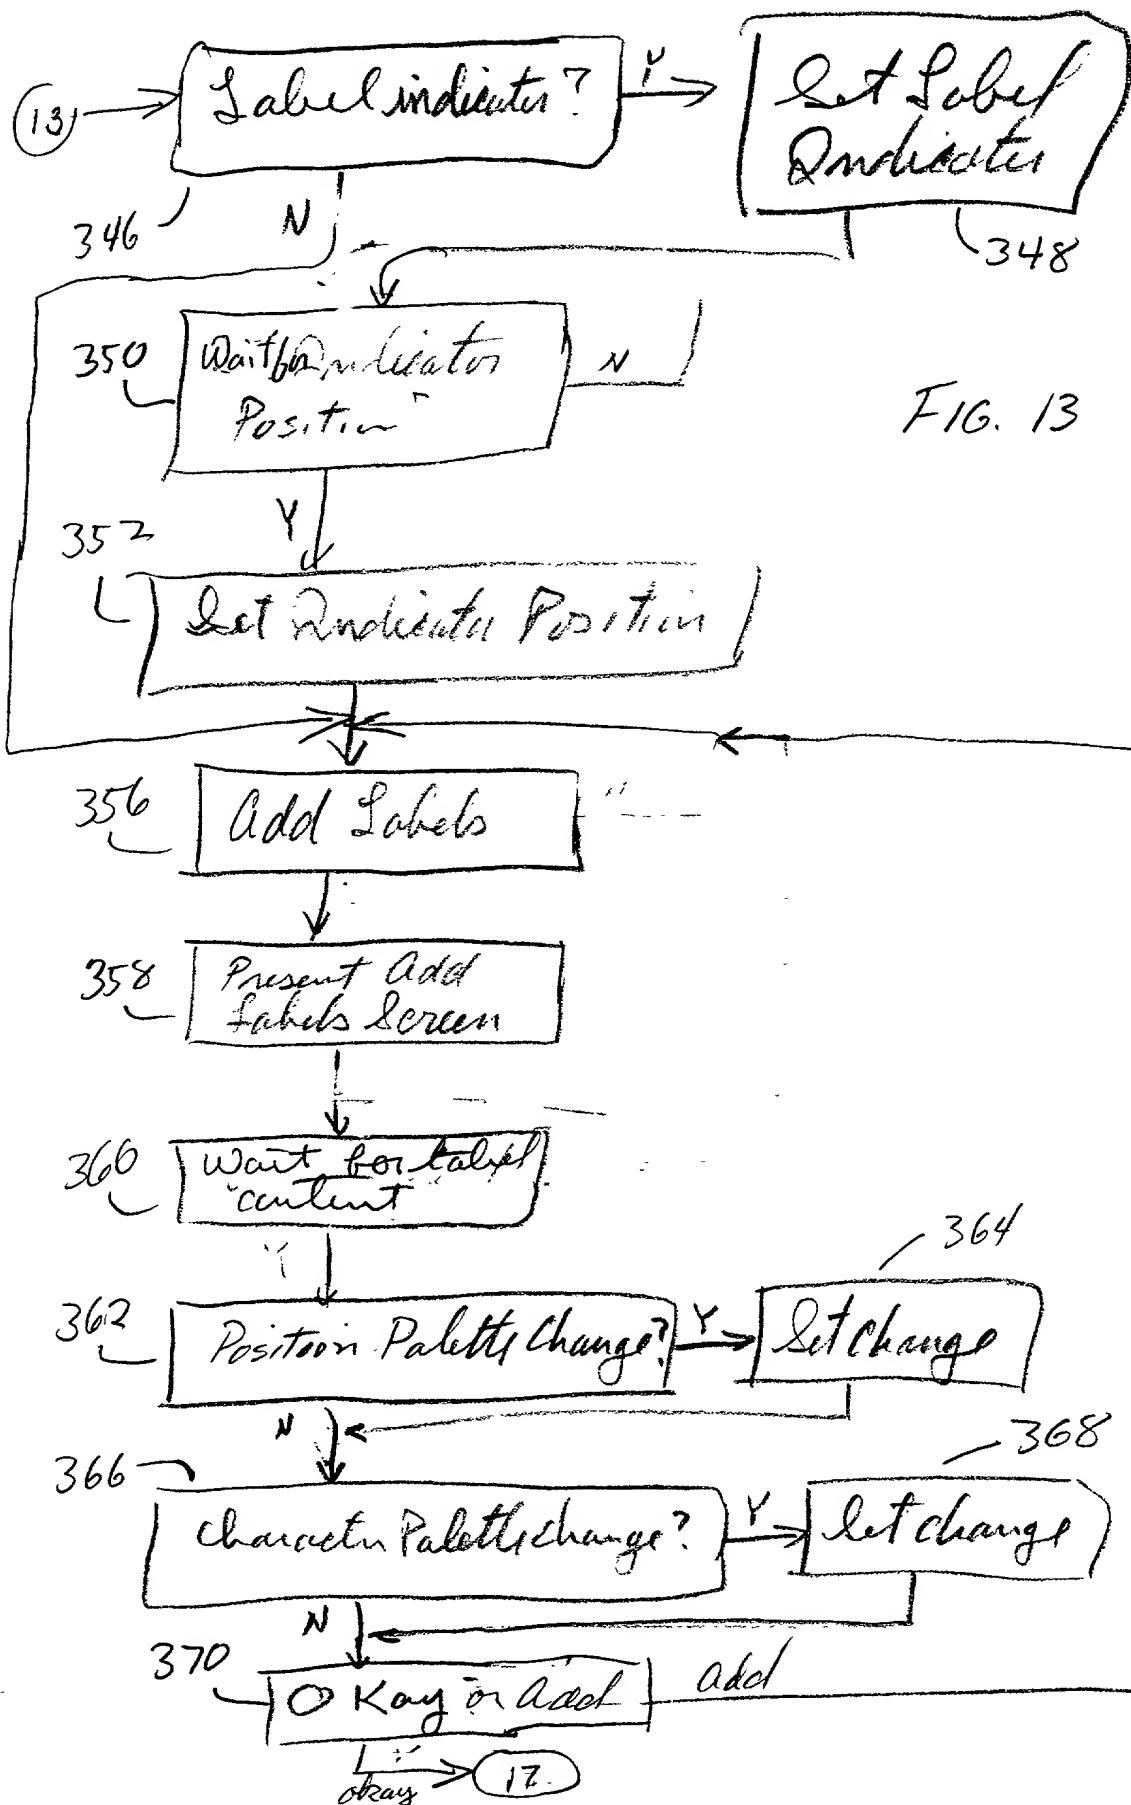 13
Label indicator?
Y
Set Label
Indicator
346
N
348
350
Wait for Indicator
Position
N
FIG. 13
Y
352
Set Indicator Position
356
Add Labels
358
Present Add
Labels Screen
360
Wait for label
content
364
362
Position Palette Change?
Y
Set Change
N
368
366
Character Palette change?
Y
Set change
N
370
O Kay or Add
Add
okay
17